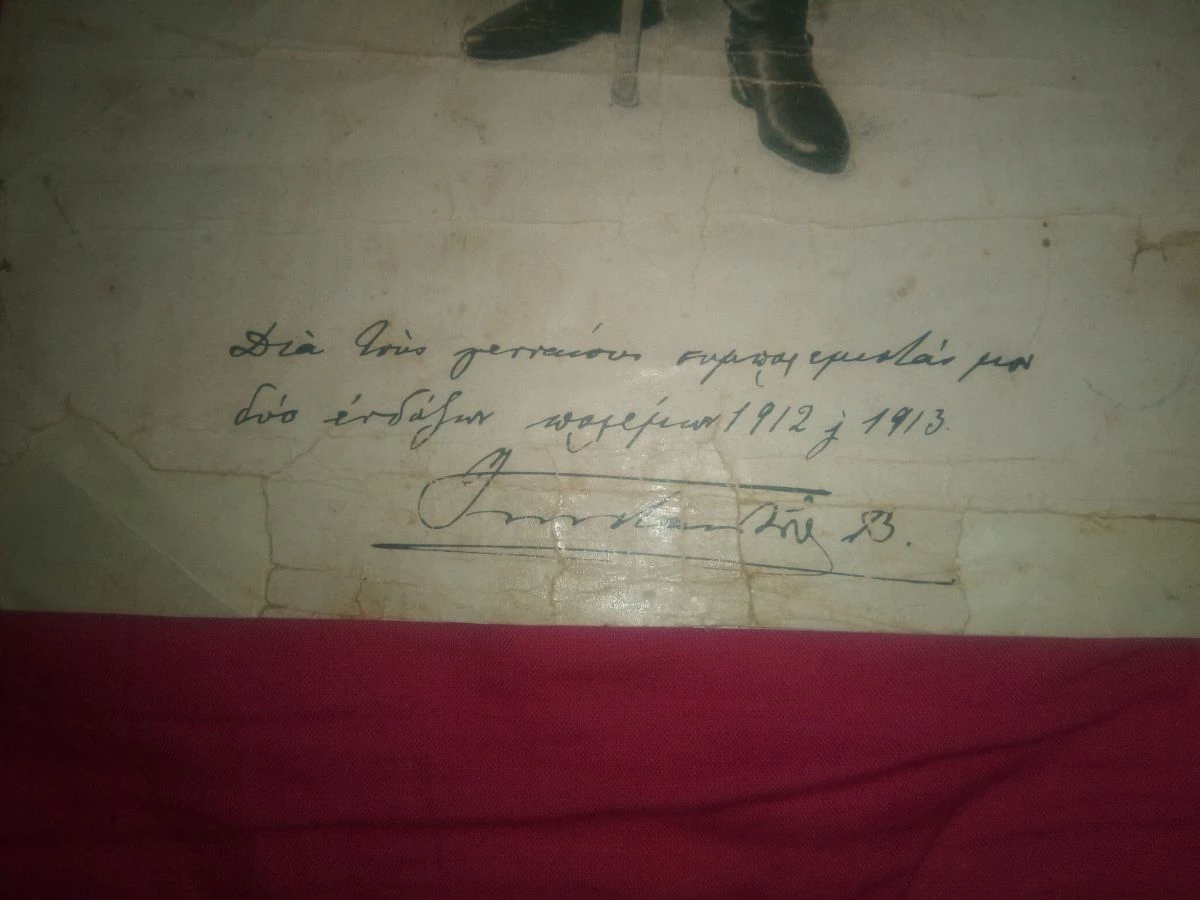 Διὰ τοὺς γενναίους συμπολεμιστάς μου
δύο ἐνδόξων πολέμων 1912 ϗ 1913.
Κωνσταντῖνος Β.